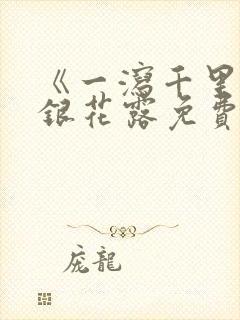 《一瀉千里
銀花露免費
庞龍